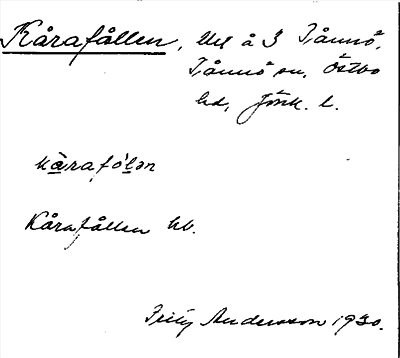 Kårafållen, Uti å 3 Tånnö,
Tånnö sn, Östbo
hd, Jönk. l.
kàrafó̀lən
Kårafållen hb.
Fritz Andersson 1930.